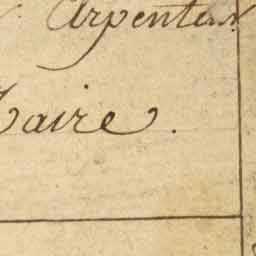 Arpenteur
aire.